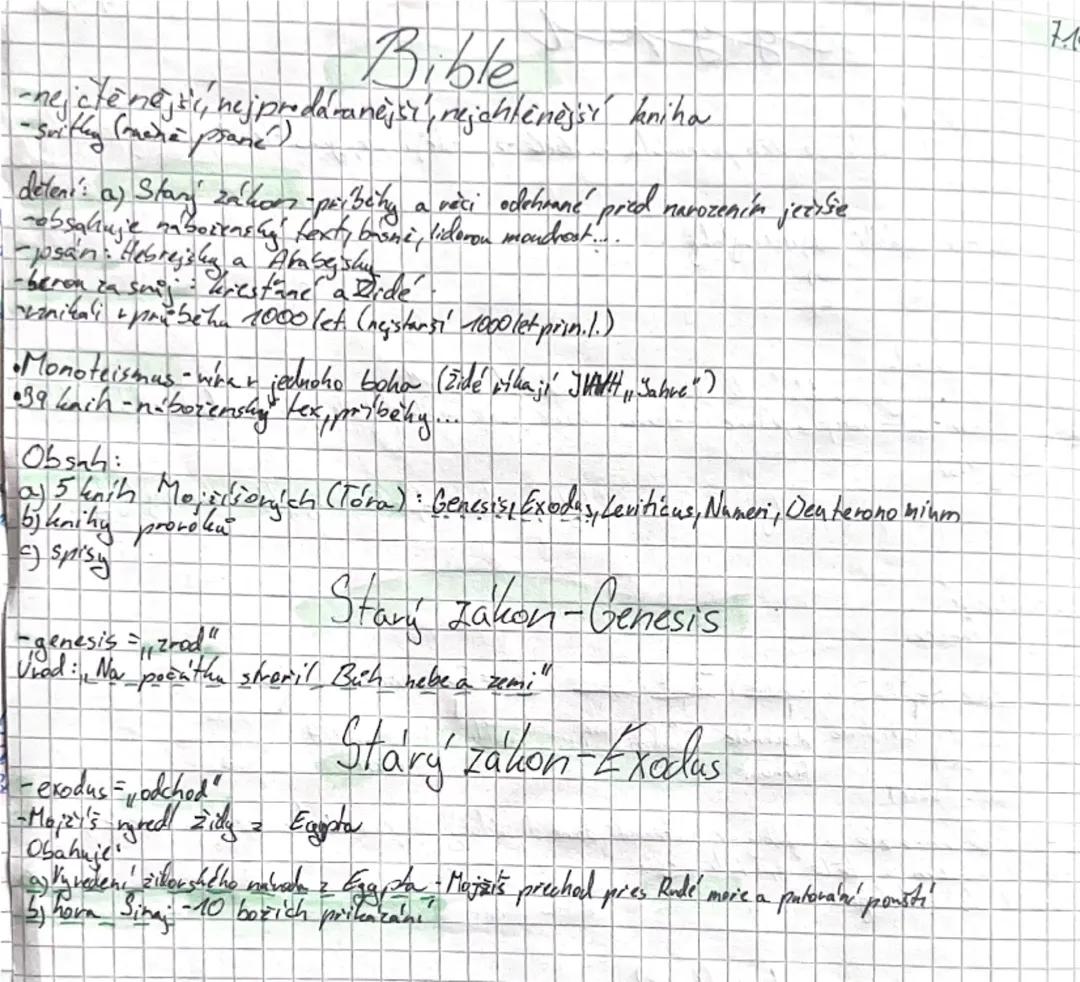 7.1
Bible
-nejčtěnější, nejprodávanější, nejchtěnější kniha
-svitky (ručně psané)
dělení: a) Starý zákon -příběhy a věci odehrané před narozením ježíše
-obsahuje náboženský texty, básně, lidovou moudrost...
-psán: Hebrejsky a Arabejsky
-berou za svůj: křesťané a Židé
-vznikali v průběhu 1000 let (nejstarší 1000 let př.n.l.)
•Monoteismus - víra v jednoho boha (židé říkají JHVH „Jahve")
•39 knih - náboženský tex, příběhy...
Obsah:
a) 5 knih Mojžíšových (Tóra): Genesis, Exodus, Leviticus, Numeri, Deuteronomium
b) knihy proroků
c) spisy
Starý zákon-Genesis
-genesis = „zrod"
Úvod: „Na počátku stvořil Bůh nebe a zemi"
Stárý zákon-Exodus
-exodus = „odchod"
-Mojžíš vyvedl židy z Egypta
Obahuje:
a) Vyvedení židovského národa z Egypta - Mojžíš přechod přes Rudé moře a putování pouští
b) hora Sinaj -10 božích přikázání